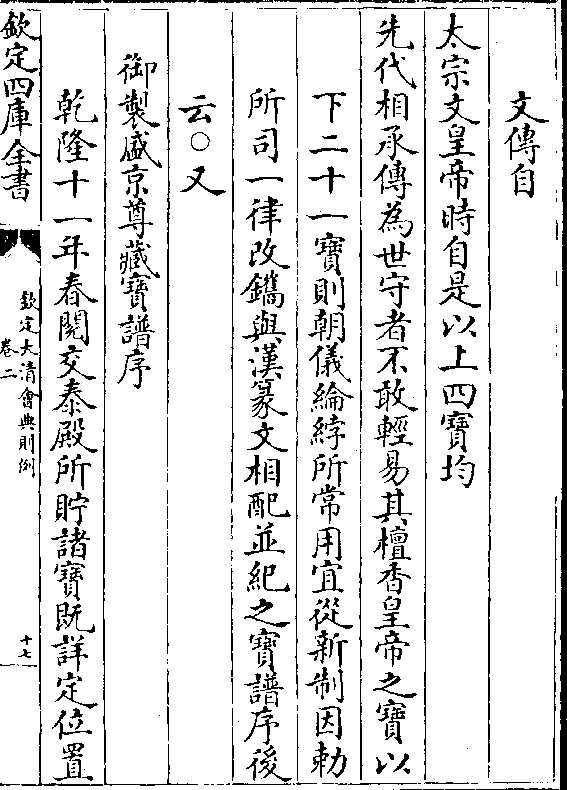 文傳自
太宗文皇帝時自是以上四寶均
先代相承傳為世守者不敢輕易其檀香皇帝之寶以
下二十一寶則朝儀綸綍所常用宜從新制因勅
所司一律改鐫與漢篆文相配並紀之寶譜序後
云○又
御製盛京尊藏寶譜序
乾隆十一年春閱交泰殿所貯諸寶既詳定位置
欽定四庫全書
欽定大清會典則例
卷二
十七